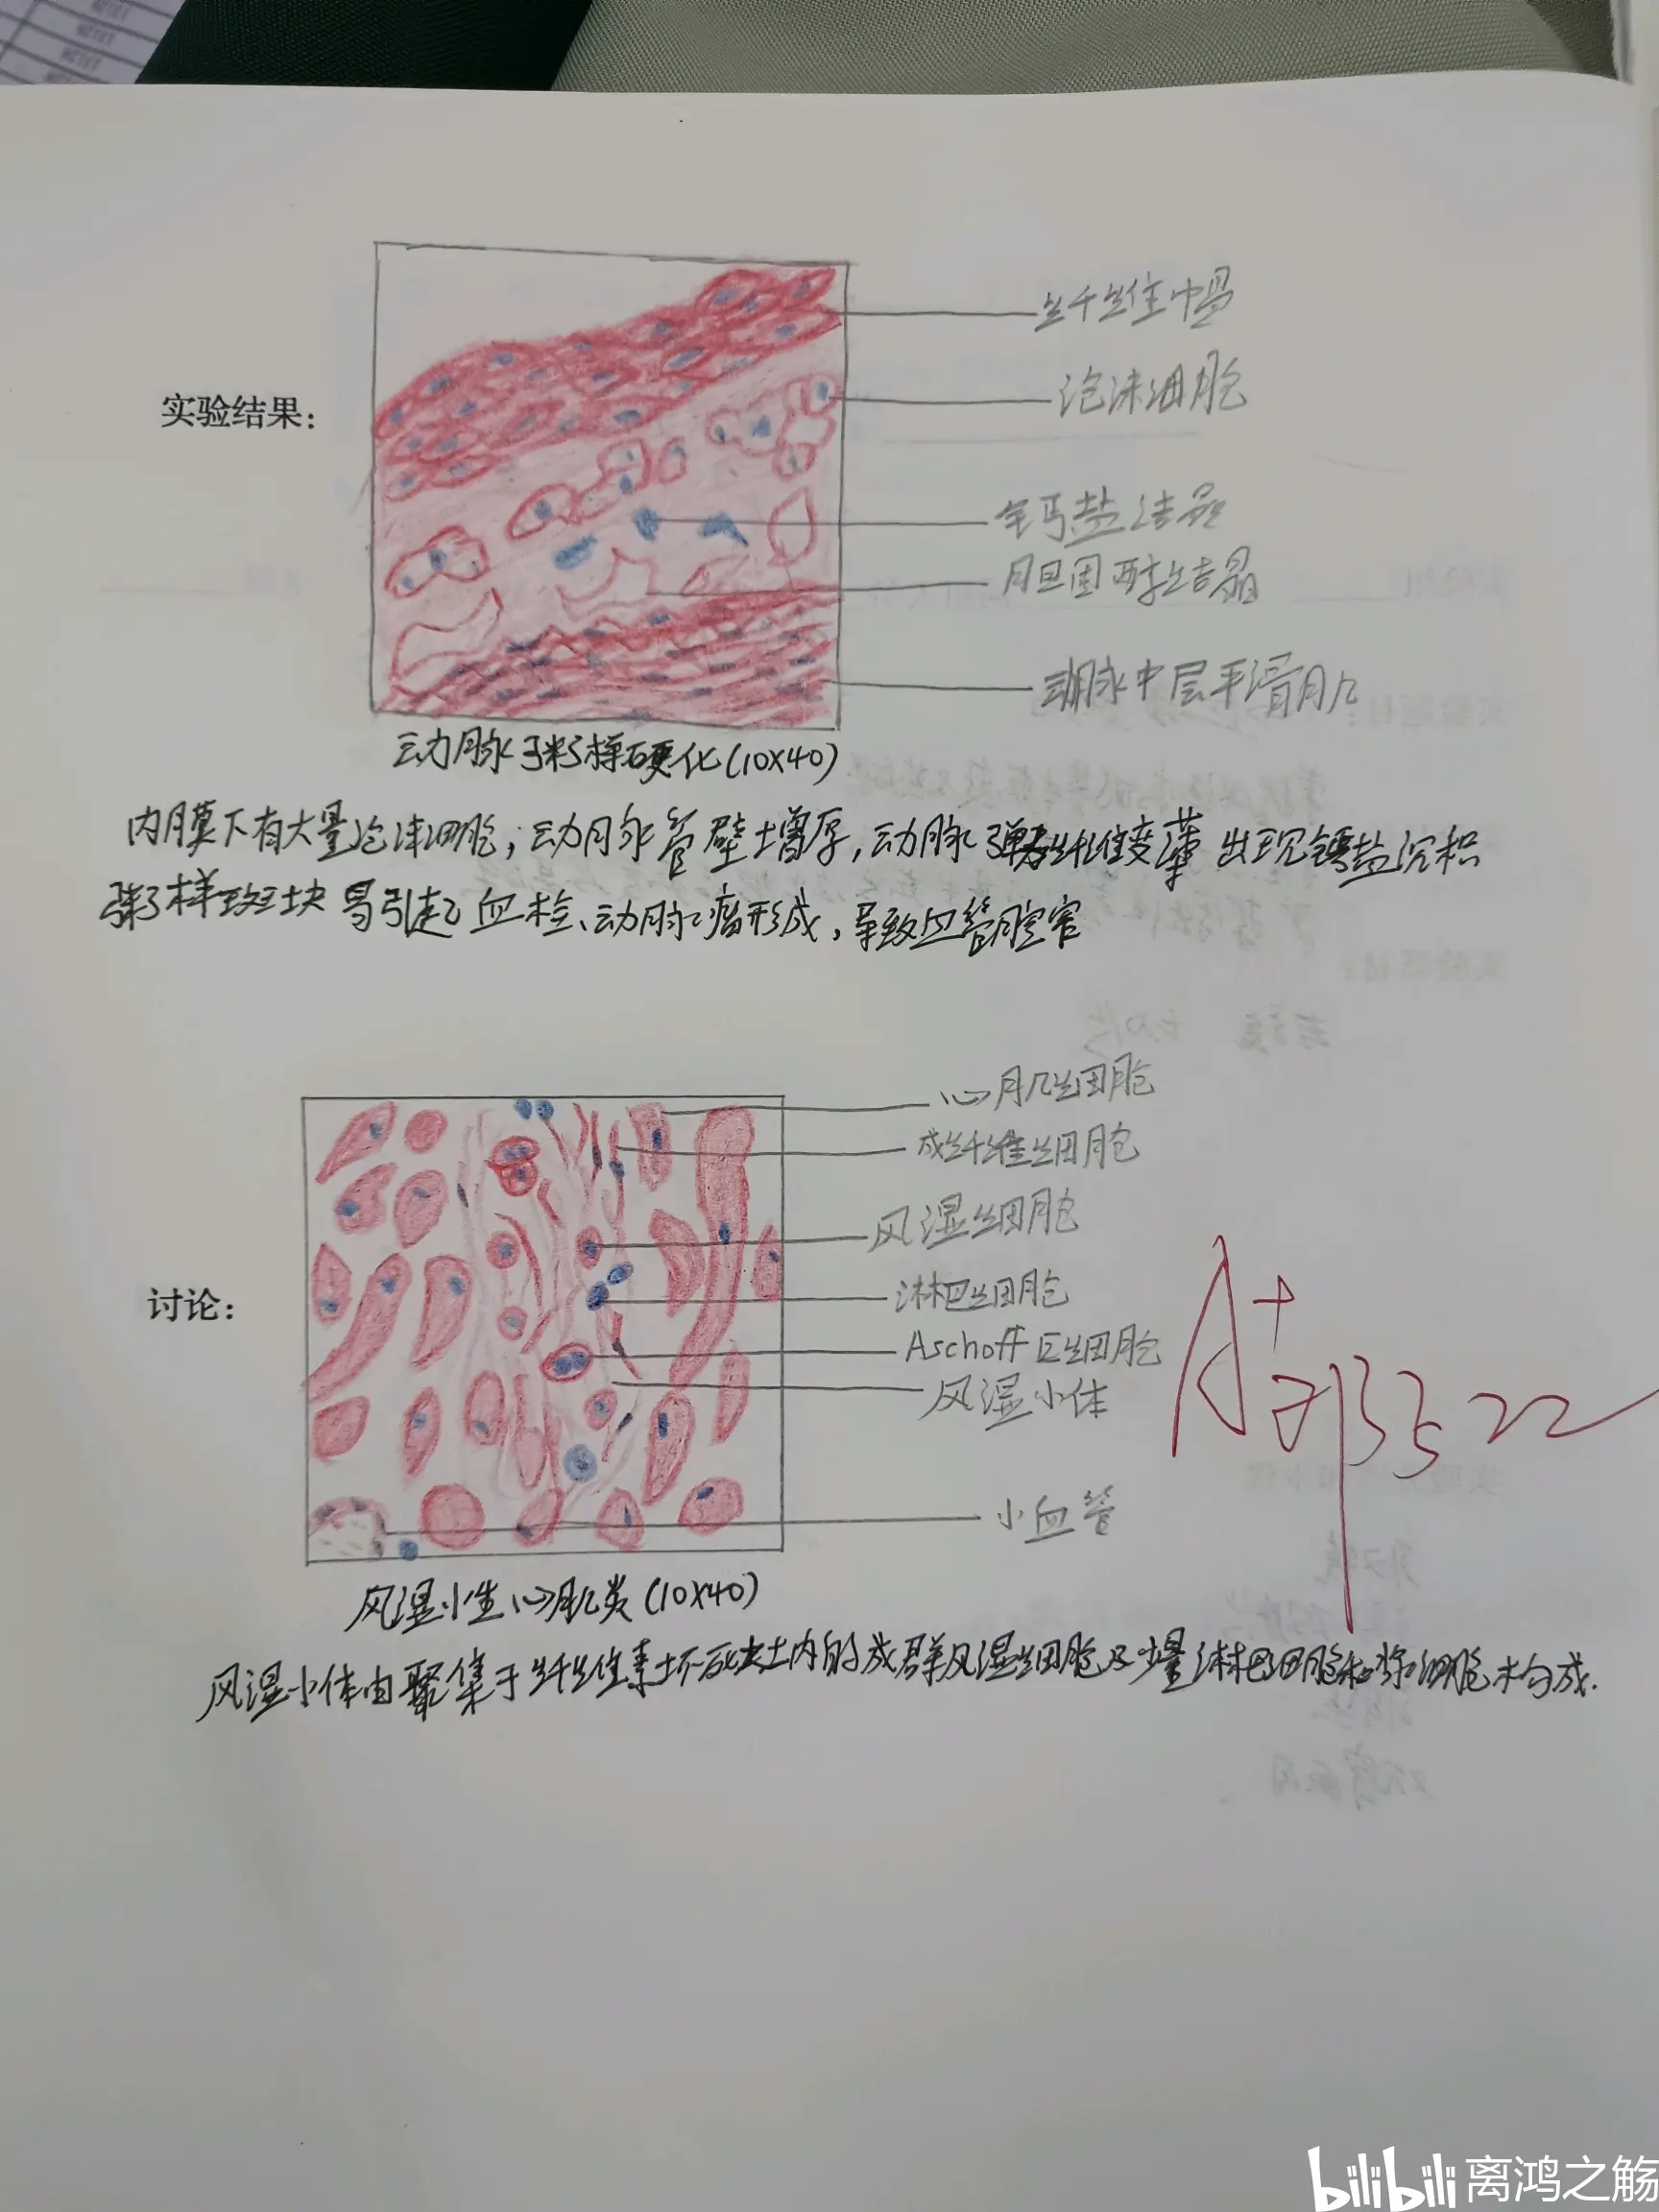 实验结果：
纤维帽
泡沫细胞
钙盐结晶
胆固醇结晶
动脉中层平滑肌
动脉粥样硬化(10X40)
内膜下有大量泡沫细胞，动脉管壁增厚，动脉弹力纤维变薄 出现钙盐沉积
粥样斑块易引起血栓、动脉瘤形成，导致血管腔窄
讨论：
心肌细胞
成纤维细胞
风湿细胞
淋巴细胞
Aschoff巨细胞
风湿小体
小血管
A+
风湿小性心肌炎(10X40)
风湿小体由聚集于纤维素坏死灶内的成群风湿细胞及少量淋巴细胞和浆细胞构成.
bilibili 离鸿之觞